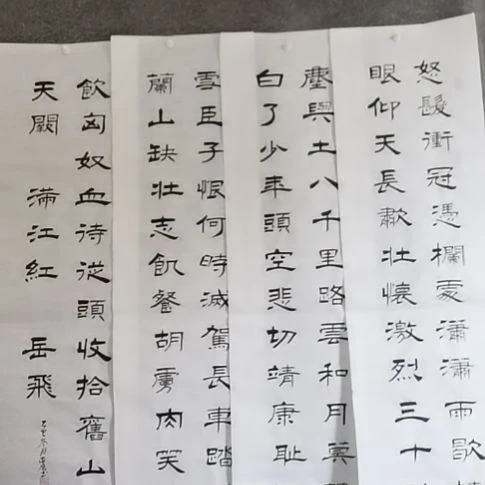 怒髮衝冠憑欄處瀟瀟雨歇
眼仰天長歗壯懷激烈三十
塵與土八千里路雲和月莫
白了少年頭空悲切靖康恥
雪臣子恨何時滅駕長車踏
蘭山缺壯志飢餐胡虜肉笑
飲匈奴血待從頭收拾舊山
天闕 滿江紅 岳飛